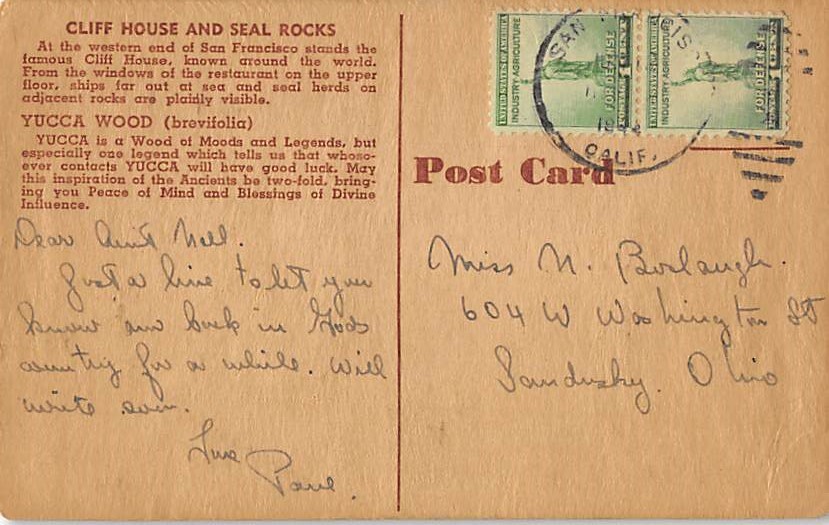 CLIFF HOUSE AND SEAL ROCKS
At the western end of San Francisco stands the
famous Cliff House, known around the world.
From the windows of the restaurant on the upper
floor, ships far out at sea and seal herds on
adjacent rocks are plainly visible.
YUCCA WOOD (brevifolia)
YUCCA is a Wood of Moods and Legends, but
especially one legend which tells us that whoso-
ever contacts YUCCA will have good luck. May
this inspiration of the Ancients be two-fold, bring-
ing you Peace of Mind and Blessings of Divine
Influence.
Dear Aunt Nell.
Just a line to let you
know am back in Gods
country for a while. Will
write soon.
Love
Paul.
UNITED STATES OF AMERICA
INDUSTRY AGRICULTURE
FOR DEFENSE
POSTAGE 1 CENT
UNITED STATES OF AMERICA
INDUSTRY AGRICULTURE
FOR DEFENSE
POSTAGE 1 CENT
SAN
CALIF.
Post Card
Miss N. Boslaugh.
604 W Washington St
Sandusky. Ohio